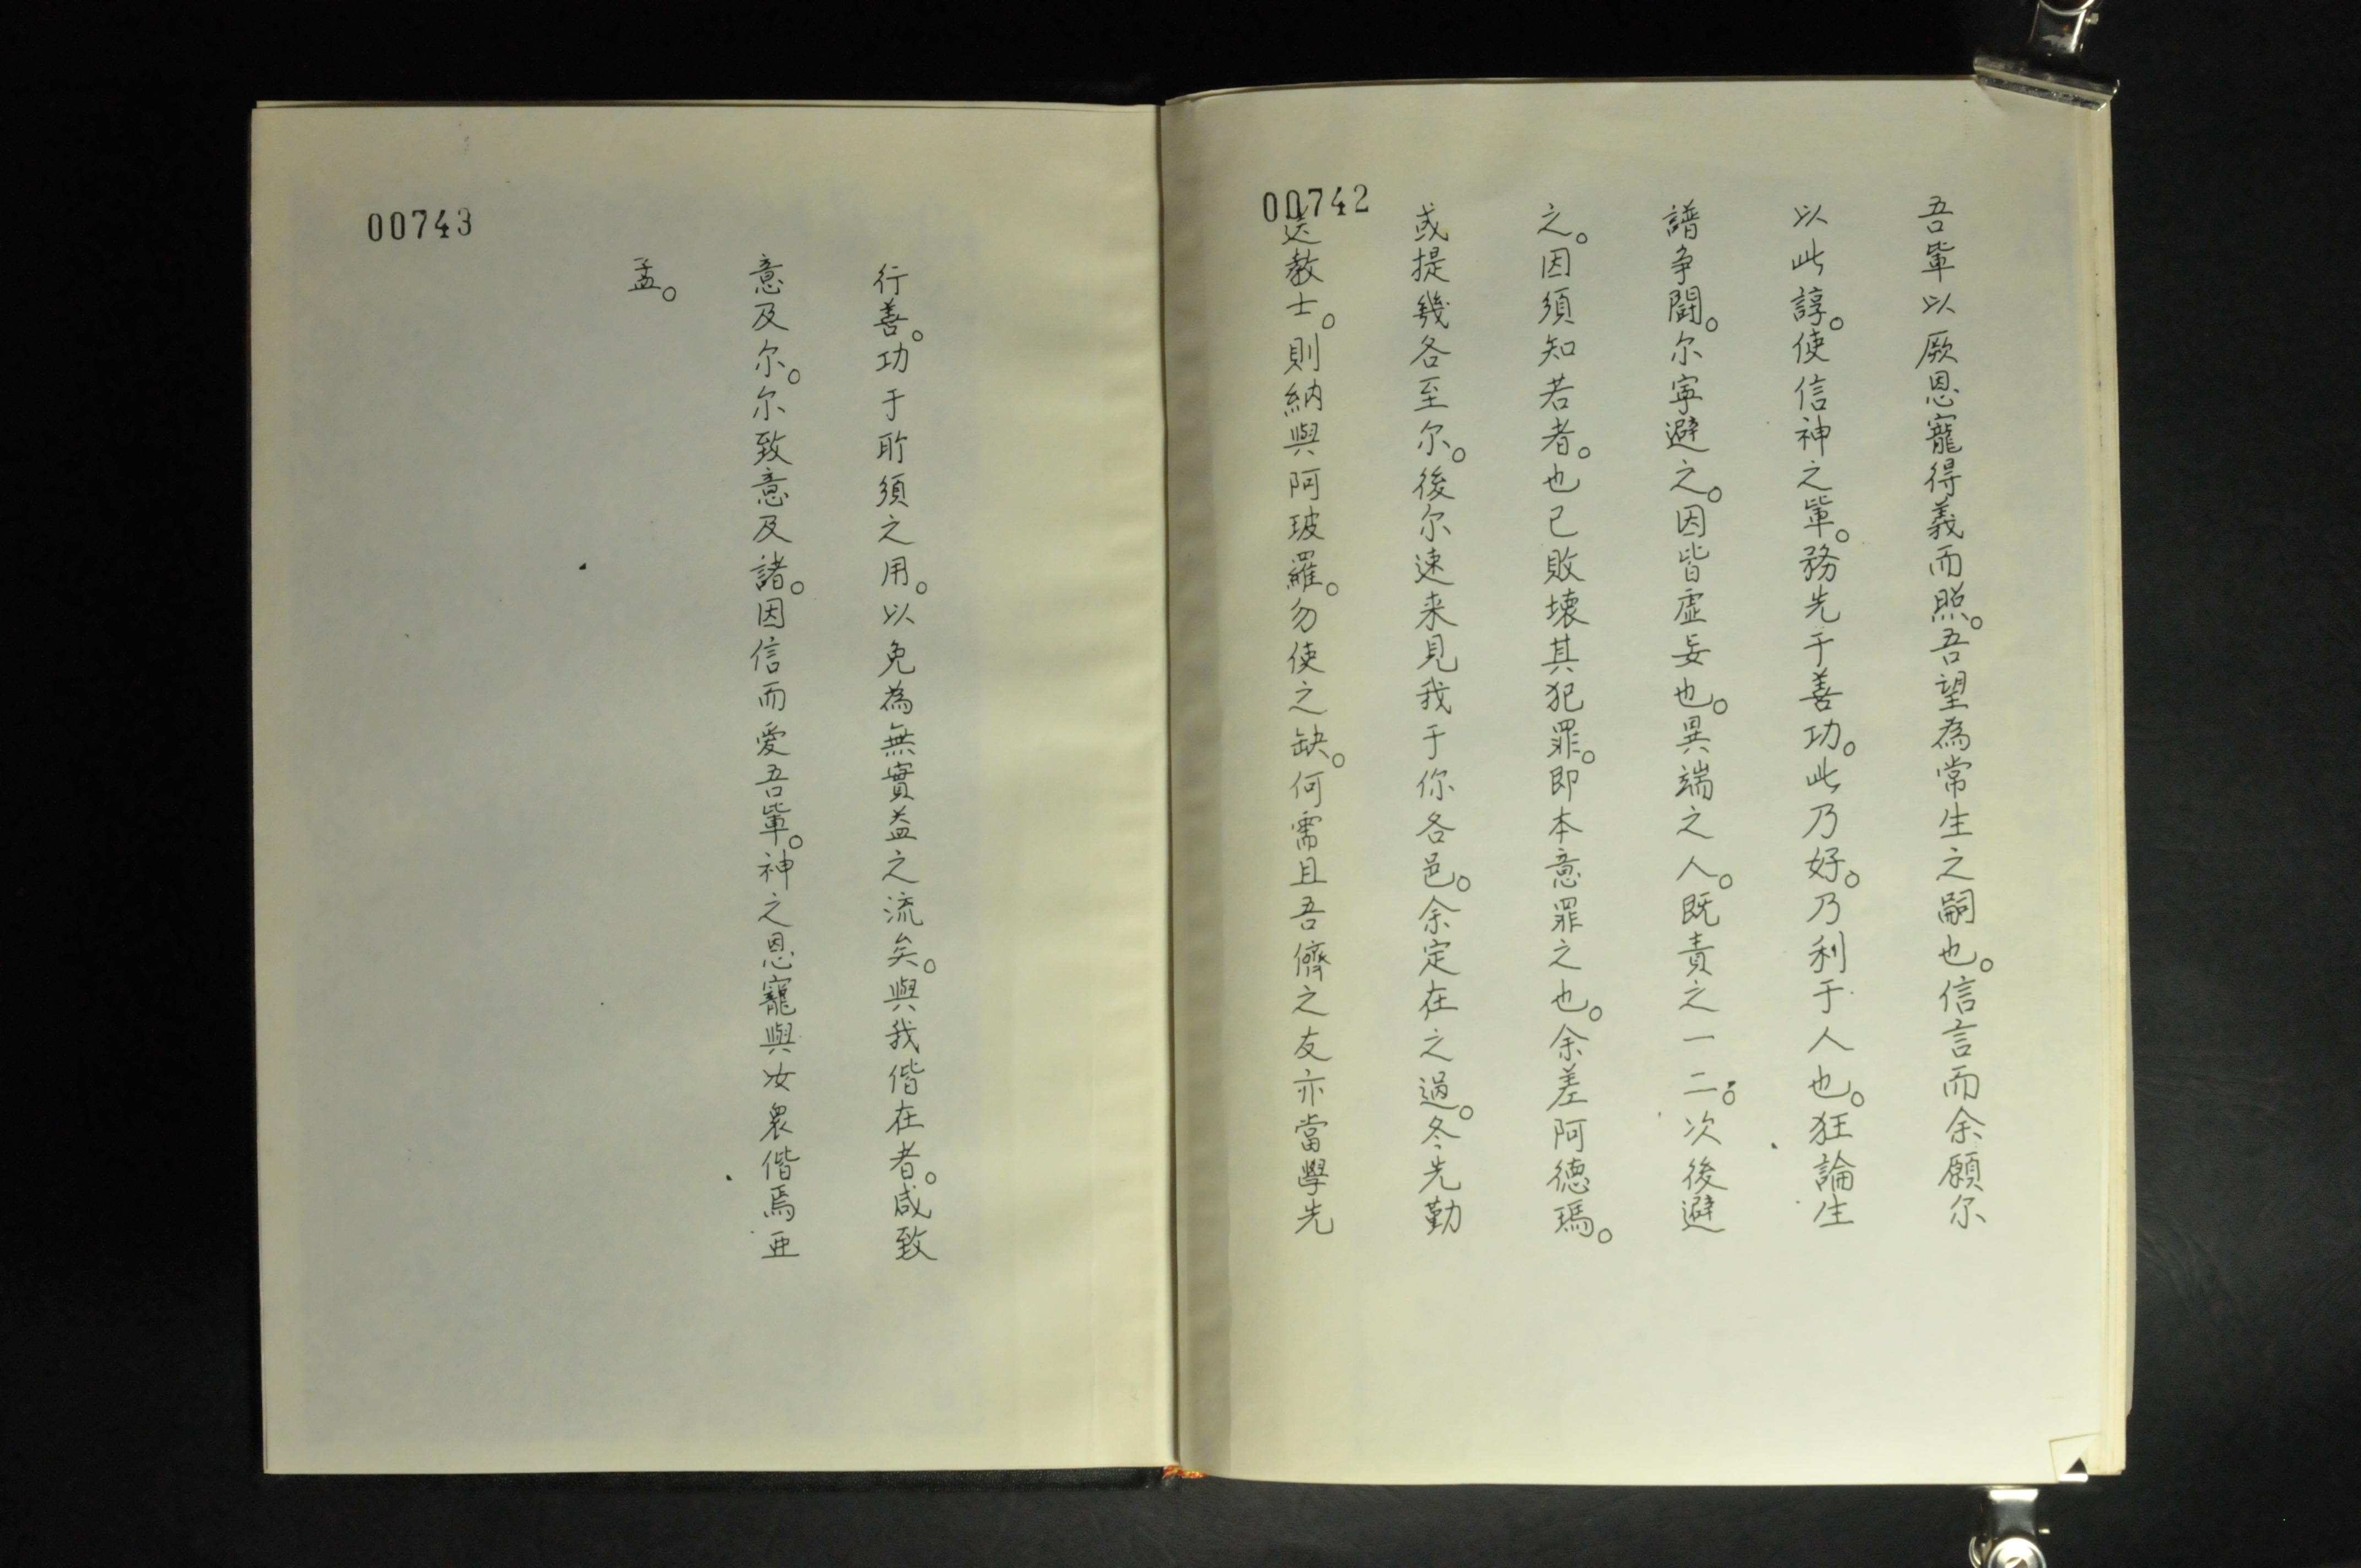 00742
吾軰以厥恩寵得義而照。吾望為常生之嗣也。信言而余願尔
以此諄。使信神之軰。務先于善功。此乃好。乃利于人也。狂論生
譜争闘。尔寕避之。因皆虛妄也。異端之人。既責之一二。次後避
之。因須知若者。也已敗壊其犯罪。即本意罪之也。余差阿德瑪。
或提幾各至尔。後尔速来見我于你各邑。余定在之過。冬先勤
送教士。則納與阿玻羅。勿使之缺。何需且吾儕之友亦當學先
00743
行善。功于所須之用。以免為無實益之流矣。與我偕在者。咸致
意及尔。尔致意及諸。因信而愛吾軰。神之恩寵與汝衆偕焉亜
孟。